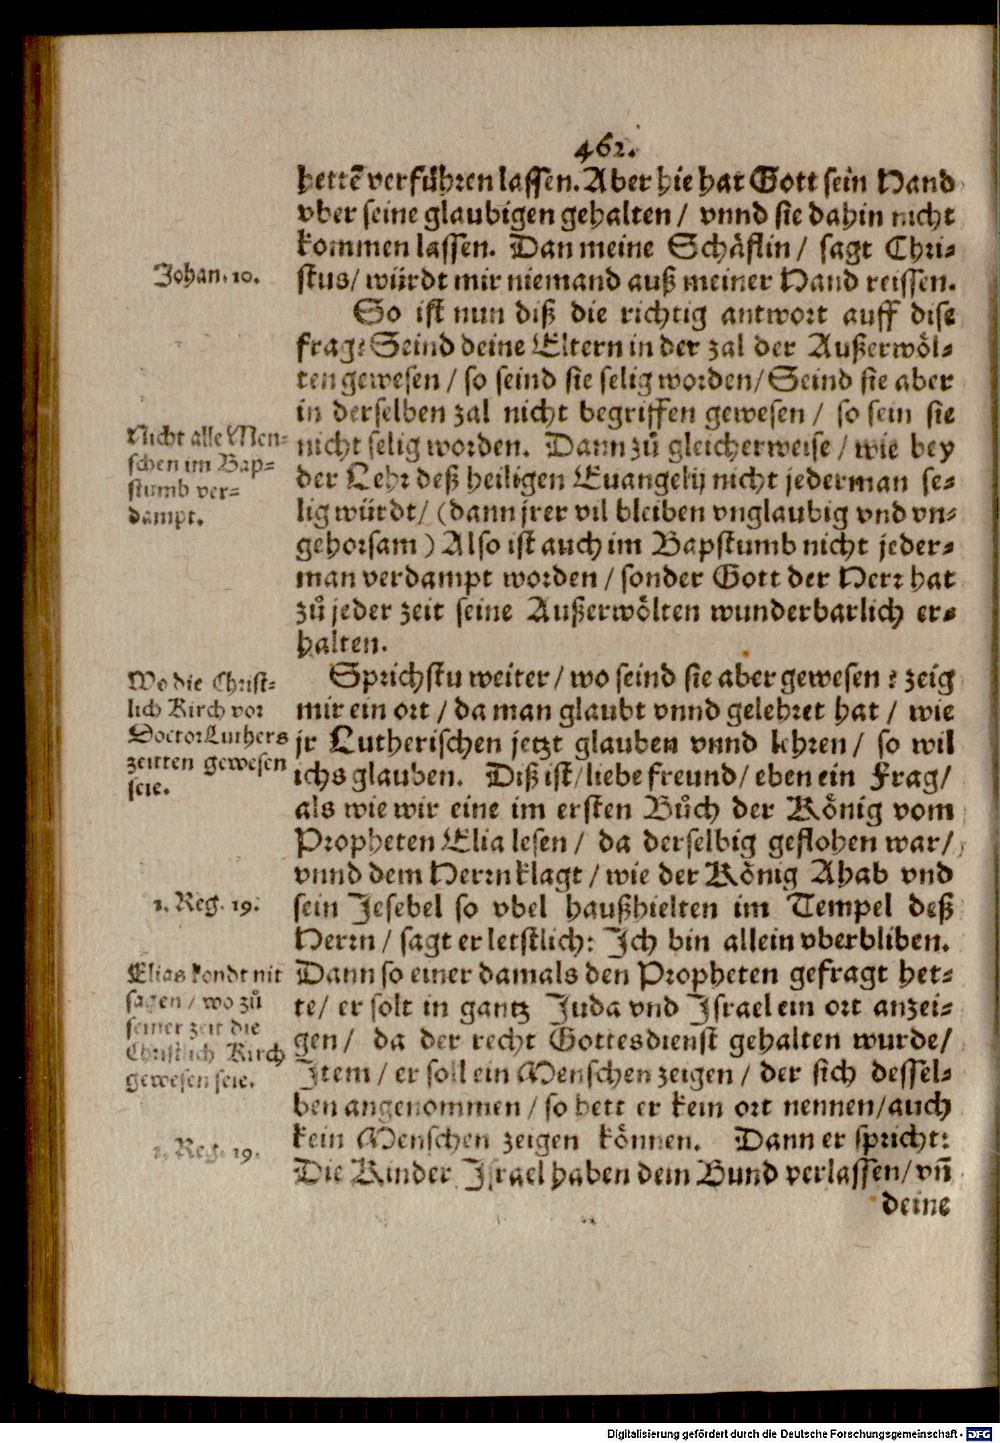 462.
hettẽ verfůhren lassen. Aber hie hat Gott sein Hand
vber seine glaubigen gehalten / vnnd sie dahin nicht
kommen lassen. Dan meine Schäflin / sagt Chri-
Johan. 10.
stus / würdt mir niemand auß meiner Hand reissen.
So ist nun diß die richtig antwort auff dise
frag: Seind deine Eltern in der zal der Außerwöl-
ten gewesen / so seind sie selig worden / Seind sie aber
in derselben zal nicht begriffen gewesen / so sein sie
Nicht alle Men-
schen im Bap-
stumb ver-
dampt.
nicht selig worden. Dann zů gleicherweise / wie bey
der Lehr deß heiligen Euangelij nicht jederman se-
lig würdt / (dann jrer vil bleiben vnglaubig vnd vn-
gehorsam) Also ist auch im Bapstumb nicht jeder-
man verdampt worden / sonder Gott der Herr hat
zů jeder zeit seine Außerwölten wunderbarlich er-
halten.
Wo die Christ-
lich Kirch vor
Doctor Luthers
zeitten gewesen
seie.
Sprichstu weiter / wo seind sie aber gewesen? zeig
mir ein ort / da man glaubt vnnd gelehret hat / wie
jr Lutherischen jetzt glauben vnnd lehren / so wil
ichs glauben. Diß ist / liebe freund / eben ein Frag /
als wie wir eine im ersten Bůch der König vom
Propheten Elia lesen / da derselbig geflohen war /
vnnd dem Herrn klagt / wie der König Ahab vnd
1. Reg. 19.
sein Jesebel so vbel haußhielten im Tempel deß
Herrn / sagt er letstlich: Ich bin allein vberbliben.
Elias kondt nit
sagen / wo zů
seiner zeit die
Christlich Kirch
gewesen seie.
Dann so einer damals den Propheten gefragt het-
te / er solt in gantz Juda vnd Israel ein ort anzei-
gen / da der recht Gottesdienst gehalten wurde /
Item / er soll ein Menschen zeigen / der sich dessel-
ben angenommen / so hett er kein ort nennen / auch
kein Menschen zeigen können. Dann er spricht:
1. Reg. 19.
Die Kinder Israel haben dein Bund verlassen / vñ
deine
Digitalisierung gefördert durch die Deutsche Forschungsgemeinschaft - DFG